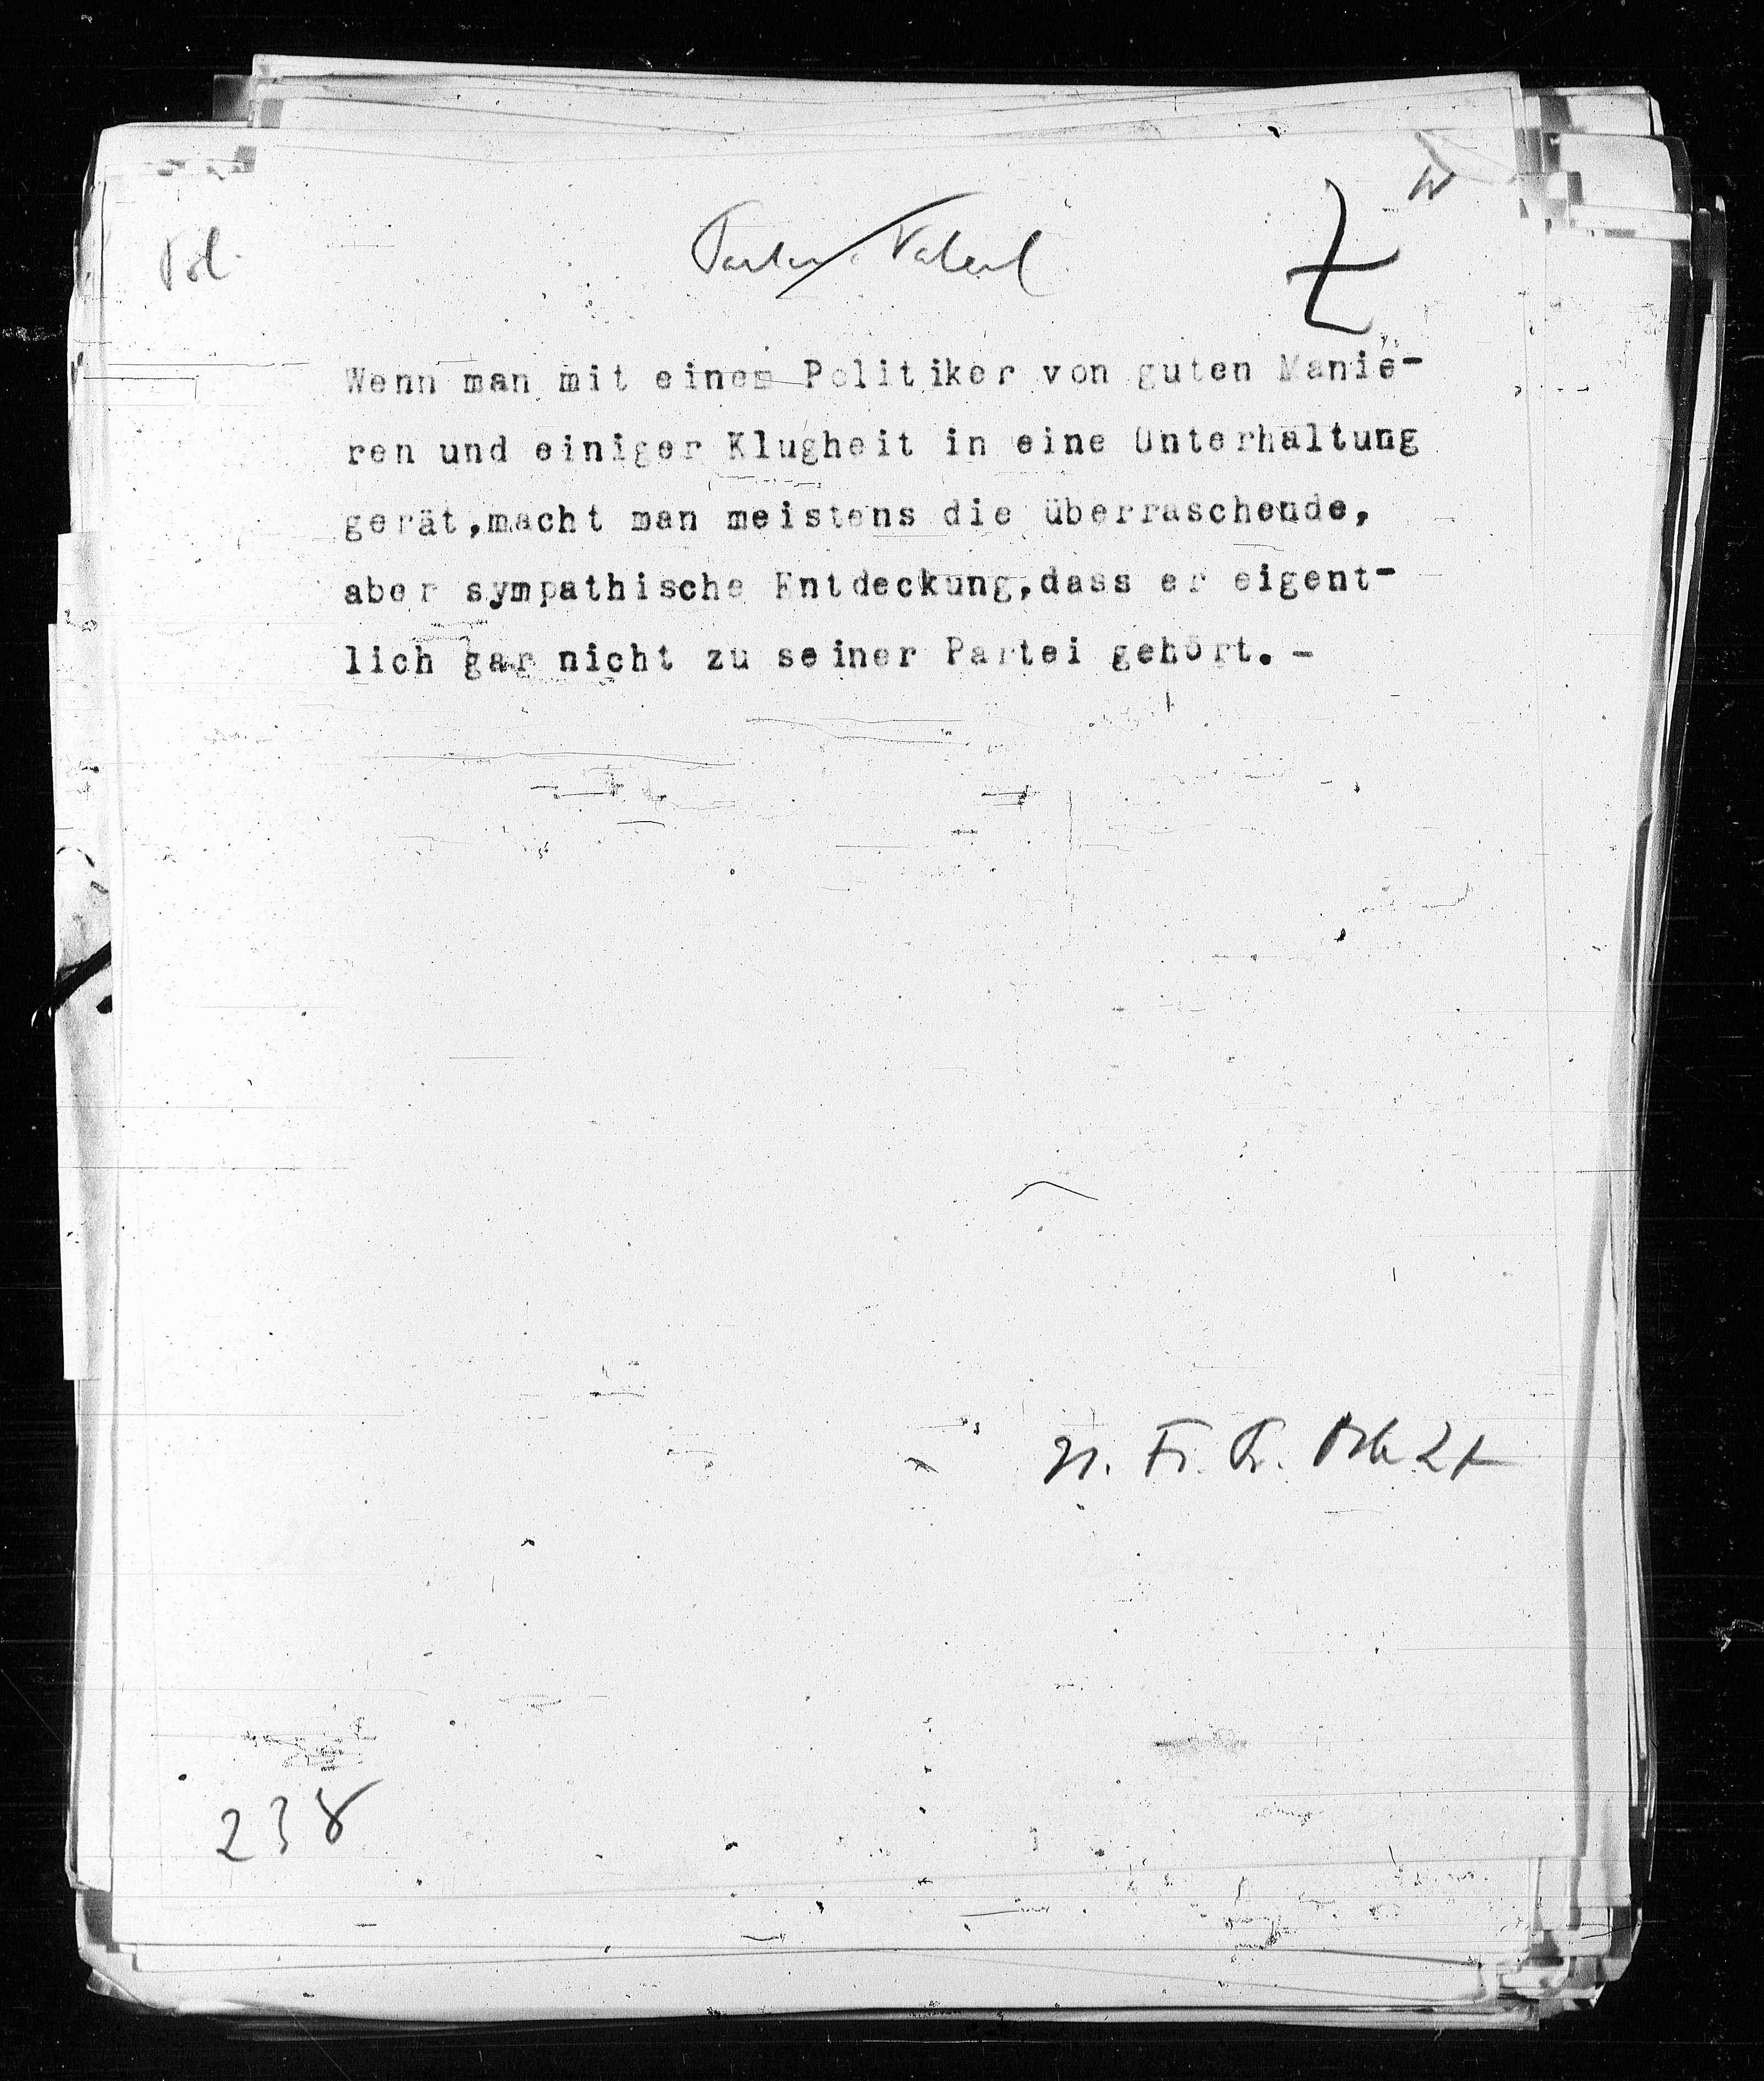 Pol.
Wenn man mit einem Politiker von guten Manie-
ren und einiger Klugheit in eine Unterhaltung
gerät,macht man meistens die überraschende,
aber sympathische Entdeckung,dass er eigent-
lich gar nicht zu seiner Partei gehört. -
N. Fr. Pr.
238